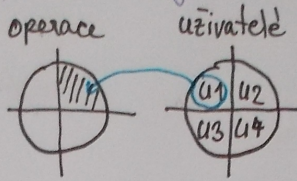 operace uživatelé
u1 u2
u3 u4